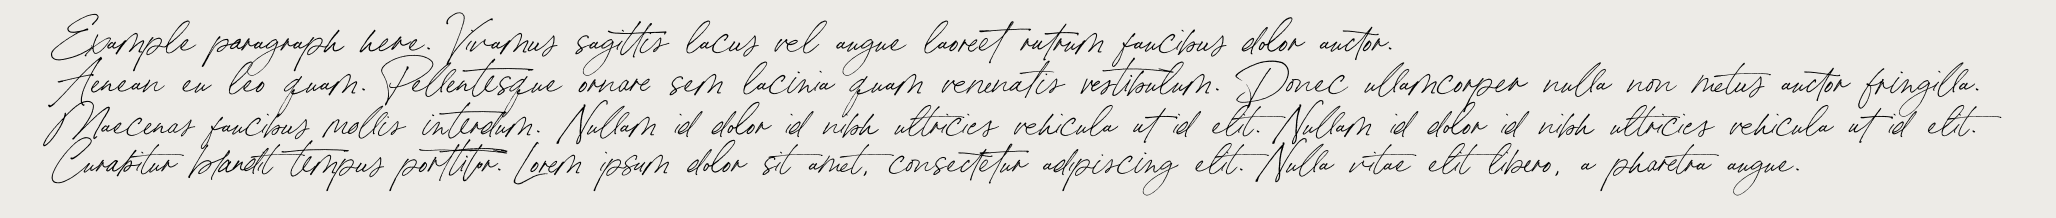 Example paragraph here. Vivamus sagittis lacus vel augue laoreet rutrum faucibus dolor auctor.
Aenean eu leo quam. Pellentesque ornare sem lacinia quam venenatis vestibulum. Donec ullamcorper nulla non metus auctor fringilla.
Maecenas faucibus mollis interdum. Nullam id dolor id nibh ultricies vehicula ut id elit. Nullam id dolor id nibh ultricies vehicula ut id elit.
Curabitur blandit tempus porttitor. Lorem ipsum dolor sit amet, consectetur adipiscing elit. Nulla vitae elit libero, a pharetra augue.